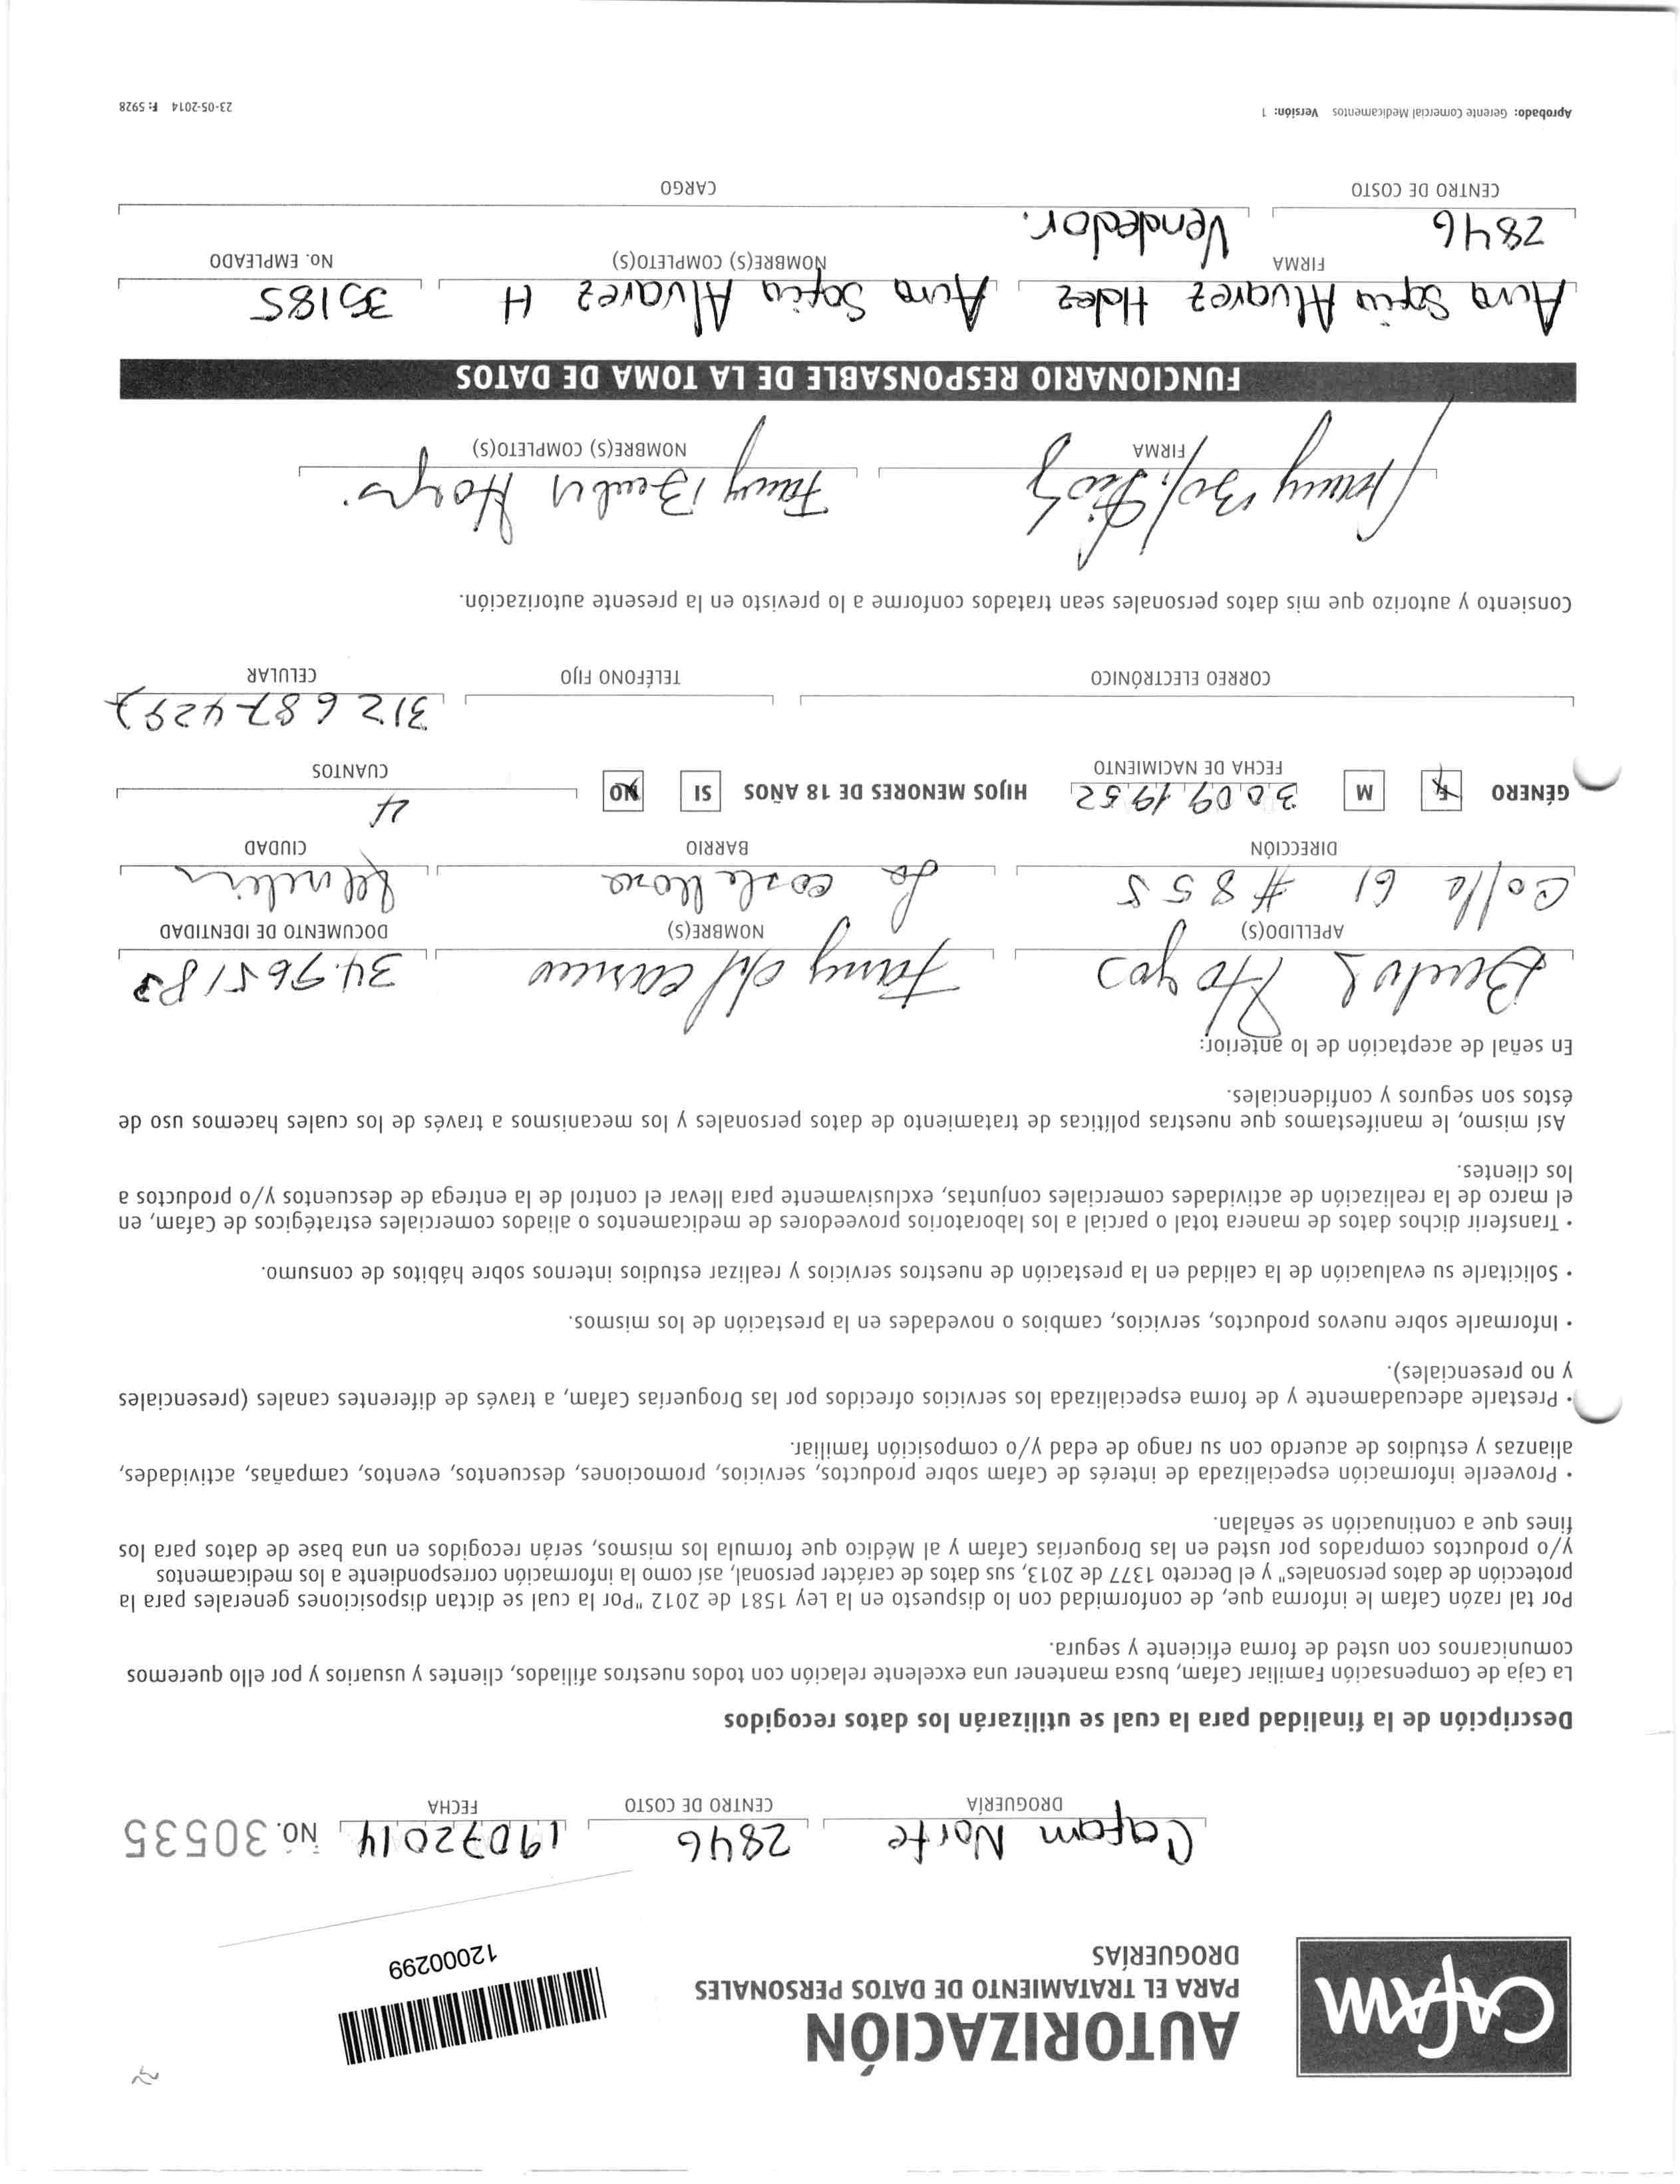 CAFAM
AUTORIZACIÓN
PARA EL TRATAMIENTO DE DATOS PERSONALES
DROGUERÍAS
12000299
Cafam Norte 2846 19072014 No. 30535
DROGUERÍA CENTRO DE COSTO FECHA
Descripción de la finalidad para la cual se utilizarán los datos recogidos
La Caja de Compensación Familiar Cafam, busca mantener una excelente relación con todos nuestros afiliados, clientes y usuarios y por ello queremos
comunicarnos con usted de forma eficiente y segura.
Por tal razón Cafam le informa que, de conformidad con lo dispuesto en la Ley 1581 de 2012 "Por la cual se dictan disposiciones generales para la
protección de datos personales" y el Decreto 1377 de 2013, sus datos de carácter personal, así como la información correspondiente a los medicamentos
y/o productos comprados por usted en las Droguerías Cafam y al Médico que formula los mismos, serán recogidos en una base de datos para los
fines que a continuación se señalan.
• Proveerle información especializada de interés de Cafam sobre productos, servicios, promociones, descuentos, eventos, campañas, actividades,
alianzas y estudios de acuerdo con su rango de edad y/o composición familiar.
• Prestarle adecuadamente y de forma especializada los servicios ofrecidos por las Droguerías Cafam, a través de diferentes canales (presenciales
y no presenciales).
• Informarle sobre nuevos productos, servicios, cambios o novedades en la prestación de los mismos.
• Solicitarle su evaluación de la calidad en la prestación de nuestros servicios y realizar estudios internos sobre hábitos de consumo.
• Transferir dichos datos de manera total o parcial a los laboratorios proveedores de medicamentos o aliados comerciales estratégicos de Cafam, en
el marco de la realización de actividades comerciales conjuntas, exclusivamente para llevar el control de la entrega de descuentos y/o productos a
los clientes.
Así mismo, le manifestamos que nuestras políticas de tratamiento de datos personales y los mecanismos a través de los cuales hacemos uso de
éstos son seguros y confidenciales.
En señal de aceptación de lo anterior:
Hoyos Fanny del carmen
APELLIDO(S) NOMBRE(S) DOCUMENTO DE IDENTIDAD
Calle 61 # 8 5 5 La castellana
DIRECCIÓN BARRIO CIUDAD
GÉNERO F M 30 09 1952 HIJOS MENORES DE 18 AÑOS SI NO 4
FECHA DE NACIMIENTO CUANTOS
312 687 4297
CORREO ELECTRÓNICO TELÉFONO FIJO CELULAR
Consiento y autorizo que mis datos personales sean tratados conforme a lo previsto en la presente autorización.
Fanny Hoyos
FIRMA NOMBRE(S) COMPLETO(S)
FUNCIONARIO RESPONSABLE DE LA TOMA DE DATOS
Aura Sofia Alvarez Hdez Aura Sofia Alvarez H 35185
FIRMA NOMBRE(S) COMPLETO(S) No. EMPLEADO
2846 Vendedor.
CENTRO DE COSTO CARGO
Aprobado: Gerente Comercial Medicamentos Versión: 1 23-05-2014 F: 5928